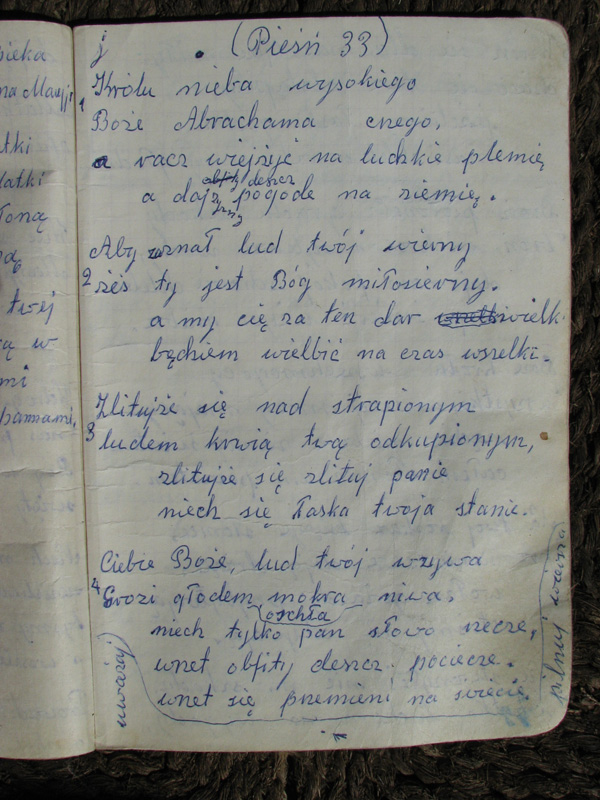 pieka
na Maryji
tki
latki
łoną
twej
ą w
mi
hannami,
j . (Pieśń 33)
1 Królu nieba wysokiego
Boże Abrachama cnego,
a racz wiejżyć na ludzkie plemię
obfity deszcz
a daj pogode na ziemię.
Aby uznał lud twój wierny
2 żeś ty jest Bóg miłosierny.
a my cię za ten dar wielk
będziem wielbić na czas wszelki.
Zlitujże się nad strapionym
3 ludem krwią twą odkupionym,
zlitujże się zlituj panie
niech się łaska twoja stanie.
Ciebie Boże, lud twój wzywa
4 Grozi głodem mokra niwa,
oschła
niech tylko pan słowo rzecze,
wnet obfity deszcz pociecze.
wnet się przemieni na świecie.
uważaj
pilnuj